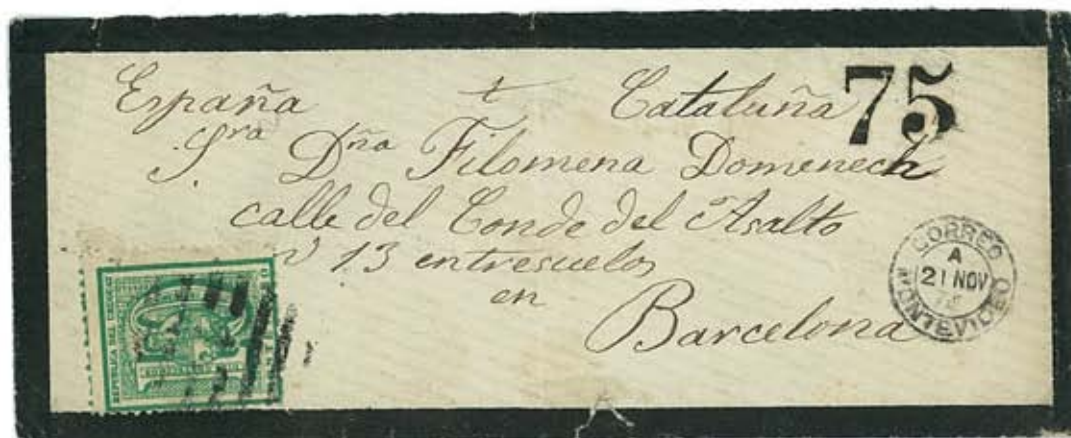 España Cataluña 75
Sra Dña Filomena Domenech
calle del Conde del Asalto
nº 13 entresuelo
en
Barcelona
CORREO
A
21 NOV
MONTEVIDEO
REPUBLICA DEL URUGUAY